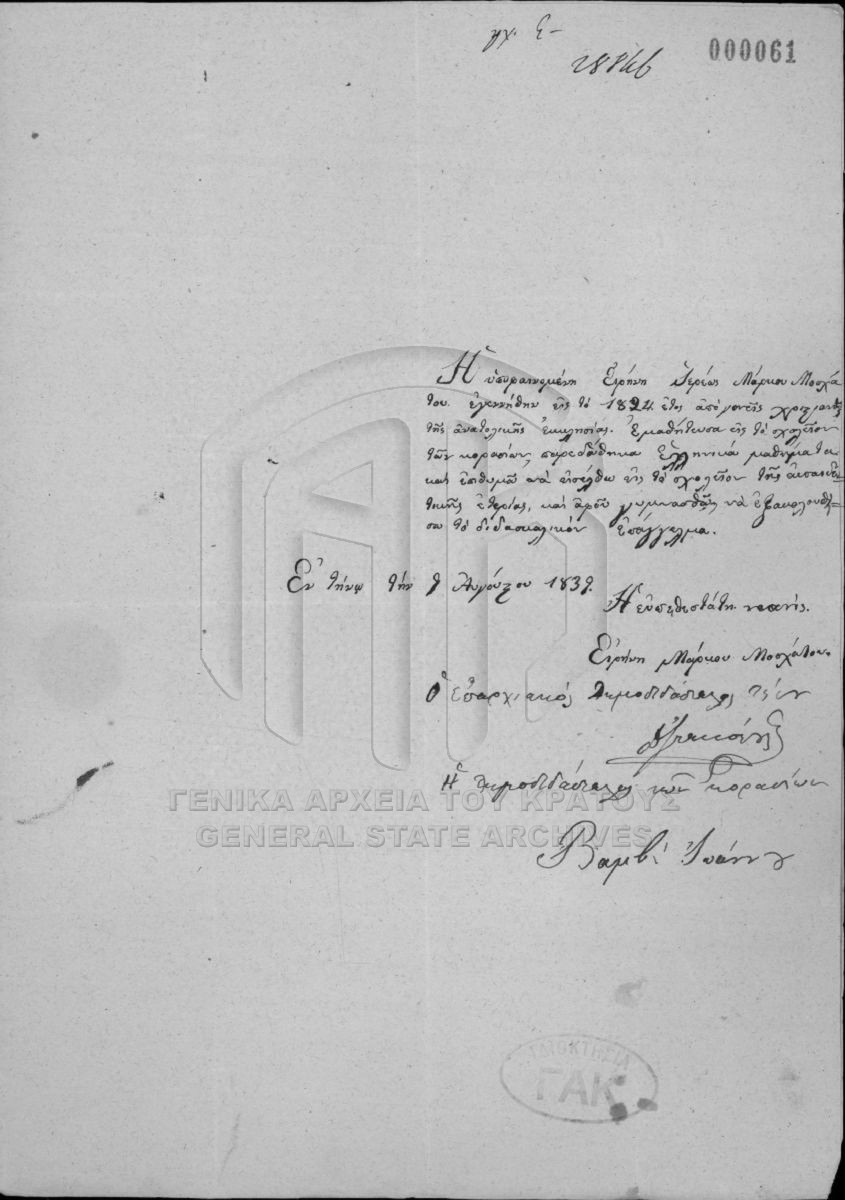 000061
28846
Ἡ ὑποφαινομένη Εἰρήνη Ἱερέως Μάρκου Μοσχά
του. ἐγεννήθην εἰς τὸ 1824 ἔτος ἀπὸ γονεῖς χριστιανοὺς
τῆς ἀνατολικῆς ἐκκλησίας. Ἐμαθήτευσα εἰς τὸ σχολεῖον
τῶν κορασίων, παρεδόθηκα ἑλληνικά μαθήματα
καὶ ἐπιθυμῶ νὰ εἰσέλθω εἰς τὸ σχολεῖον τῆς ἐκπαιδευ=
τικῆς ἑτερίας, καὶ ἀφοῦ γυμνασθῶ νὰ ἐξακολουθή=
σω τὸ διδασκαλικὸν ἐπάγγελμα.
Ἐν τήνῳ τὴν 7 Αυγούστου 1839.
Ἡ εὐπειθεστάτη νεανίς.
Εἰρήνη Μάρκου Μοσχάτου.
Ὁ Ἐπαρχιακός Δημοδιδάσκαλος Τήνου
Ἡ Δημοδιδάσκαλος τῶν κορασίων
Βαμβί Ἰωάννου
ΓΕΝΙΚΑ ΑΡΧΕΙΑ ΤΟΥ ΚΡΑΤΟΥΣ
GENERAL STATE ARCHIVES
ΙΔΙΟΚΤΗΣΙΑ
ΓΑΚ